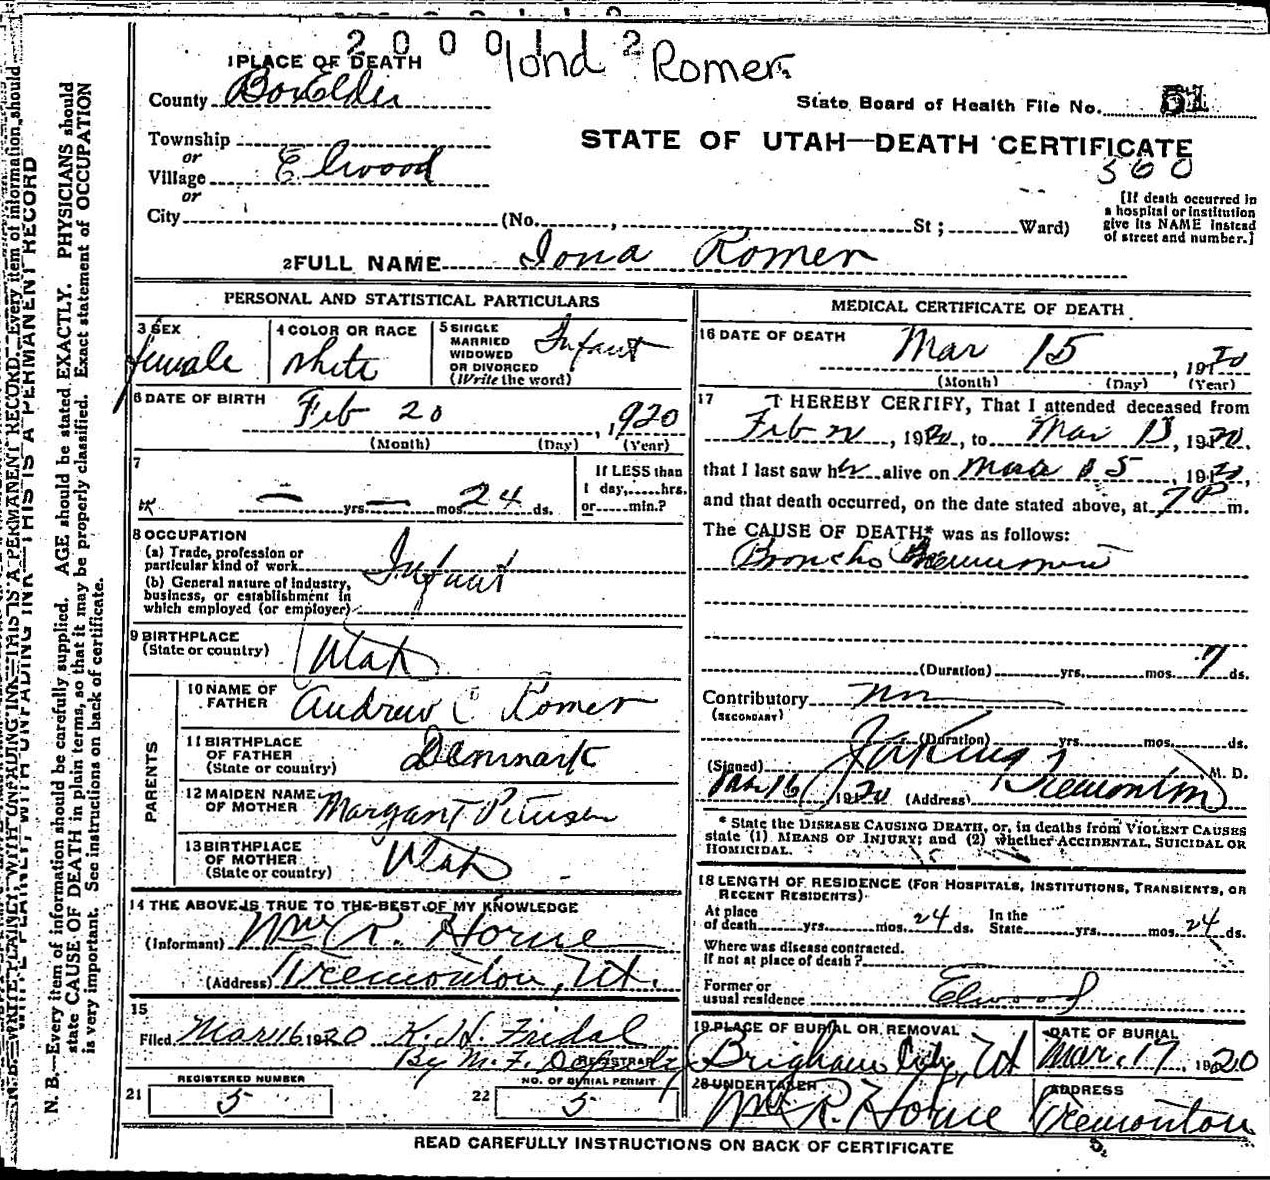 2 0 0 0 1 2
Iona Romer.
1 PLACE OF DEATH
County Box Elder
State Board of Health File No. 51
STATE OF UTAH—DEATH CERTIFICATE
360
Township
or
Village Elwood
or
City (No. , St ; Ward)
[If death occurred in
a hospital or institution
give its NAME instead
of street and number.]
2 FULL NAME Iona Romer
PERSONAL AND STATISTICAL PARTICULARS
3 SEX
female
4 COLOR OR RACE
white
5 SINGLE
MARRIED
WIDOWED
OR DIVORCED
(Write the word)
Infant
6 DATE OF BIRTH
Feb 20, 1920
(Month) (Day) (Year)
7
— yrs. — mos. 24 ds.
If LESS than
1 day, hrs.
or min.?
8 OCCUPATION
(a) Trade, profession or
particular kind of work
(b) General nature of industry,
business, or establishment in
which employed (or employer)
Infant
9 BIRTHPLACE
(State or country)
Utah
PARENTS
10 NAME OF
FATHER
Andrew C Romer
11 BIRTHPLACE
OF FATHER
(State or country)
Denmark
12 MAIDEN NAME
OF MOTHER
Margant Petersen
13 BIRTHPLACE
OF MOTHER
(State or country)
Utah
14 THE ABOVE IS TRUE TO THE BEST OF MY KNOWLEDGE
(Informant) Wm R. Horne
(Address) Tremonton, Ut.
15
Filed Mar 16 1920 K. H. Fridal
By M. F. Deputy
REGISTRAR
REGISTERED NUMBER
21 5
NO. OF BURIAL PERMIT
22 5
MEDICAL CERTIFICATE OF DEATH
16 DATE OF DEATH
Mar 15, 1920
(Month) (Day) (Year)
17 I HEREBY CERTIFY, That I attended deceased from
Feb , 1920, to Mar 15, 1920,
that I last saw her alive on Mar 15, 1920,
and that death occurred, on the date stated above, at 7 P m.
The CAUSE OF DEATH* was as follows:
Broncho Pneumonia
(Duration) yrs. mos. 7 ds.
Contributory
(SECONDARY)
(Duration) yrs. mos. ds.
(Signed) M. D.
Mar 16 1920 (Address) Tremonton
* State the DISEASE CAUSING DEATH, or, in deaths from VIOLENT CAUSES
state (1) MEANS OF INJURY; and (2) whether ACCIDENTAL, SUICIDAL OR
HOMICIDAL.
18 LENGTH OF RESIDENCE (FOR HOSPITALS, INSTITUTIONS, TRANSIENTS, OR
RECENT RESIDENTS).
At place
of death yrs. mos. 24 ds.
In the
State yrs. mos. 24 ds.
Where was disease contracted.
If not at place of death ?
Former or
usual residence Elwood
19 PLACE OF BURIAL OR REMOVAL
Brigham City, Ut
DATE OF BURIAL
Mar. 17, 1920
20 UNDERTAKER
Wm R. Horne
ADDRESS
Tremonton
READ CAREFULLY INSTRUCTIONS ON BACK OF CERTIFICATE
WRITE PLAINLY, WITH UNFADING INK—THIS IS A PERMANENT RECORD
N. B.—Every item of information should be carefully supplied. AGE should be stated EXACTLY. PHYSICIANS should
state CAUSE OF DEATH in plain terms, so that it may be properly classified. Exact statement of OCCUPATION
is very important. See instructions on back of certificate.